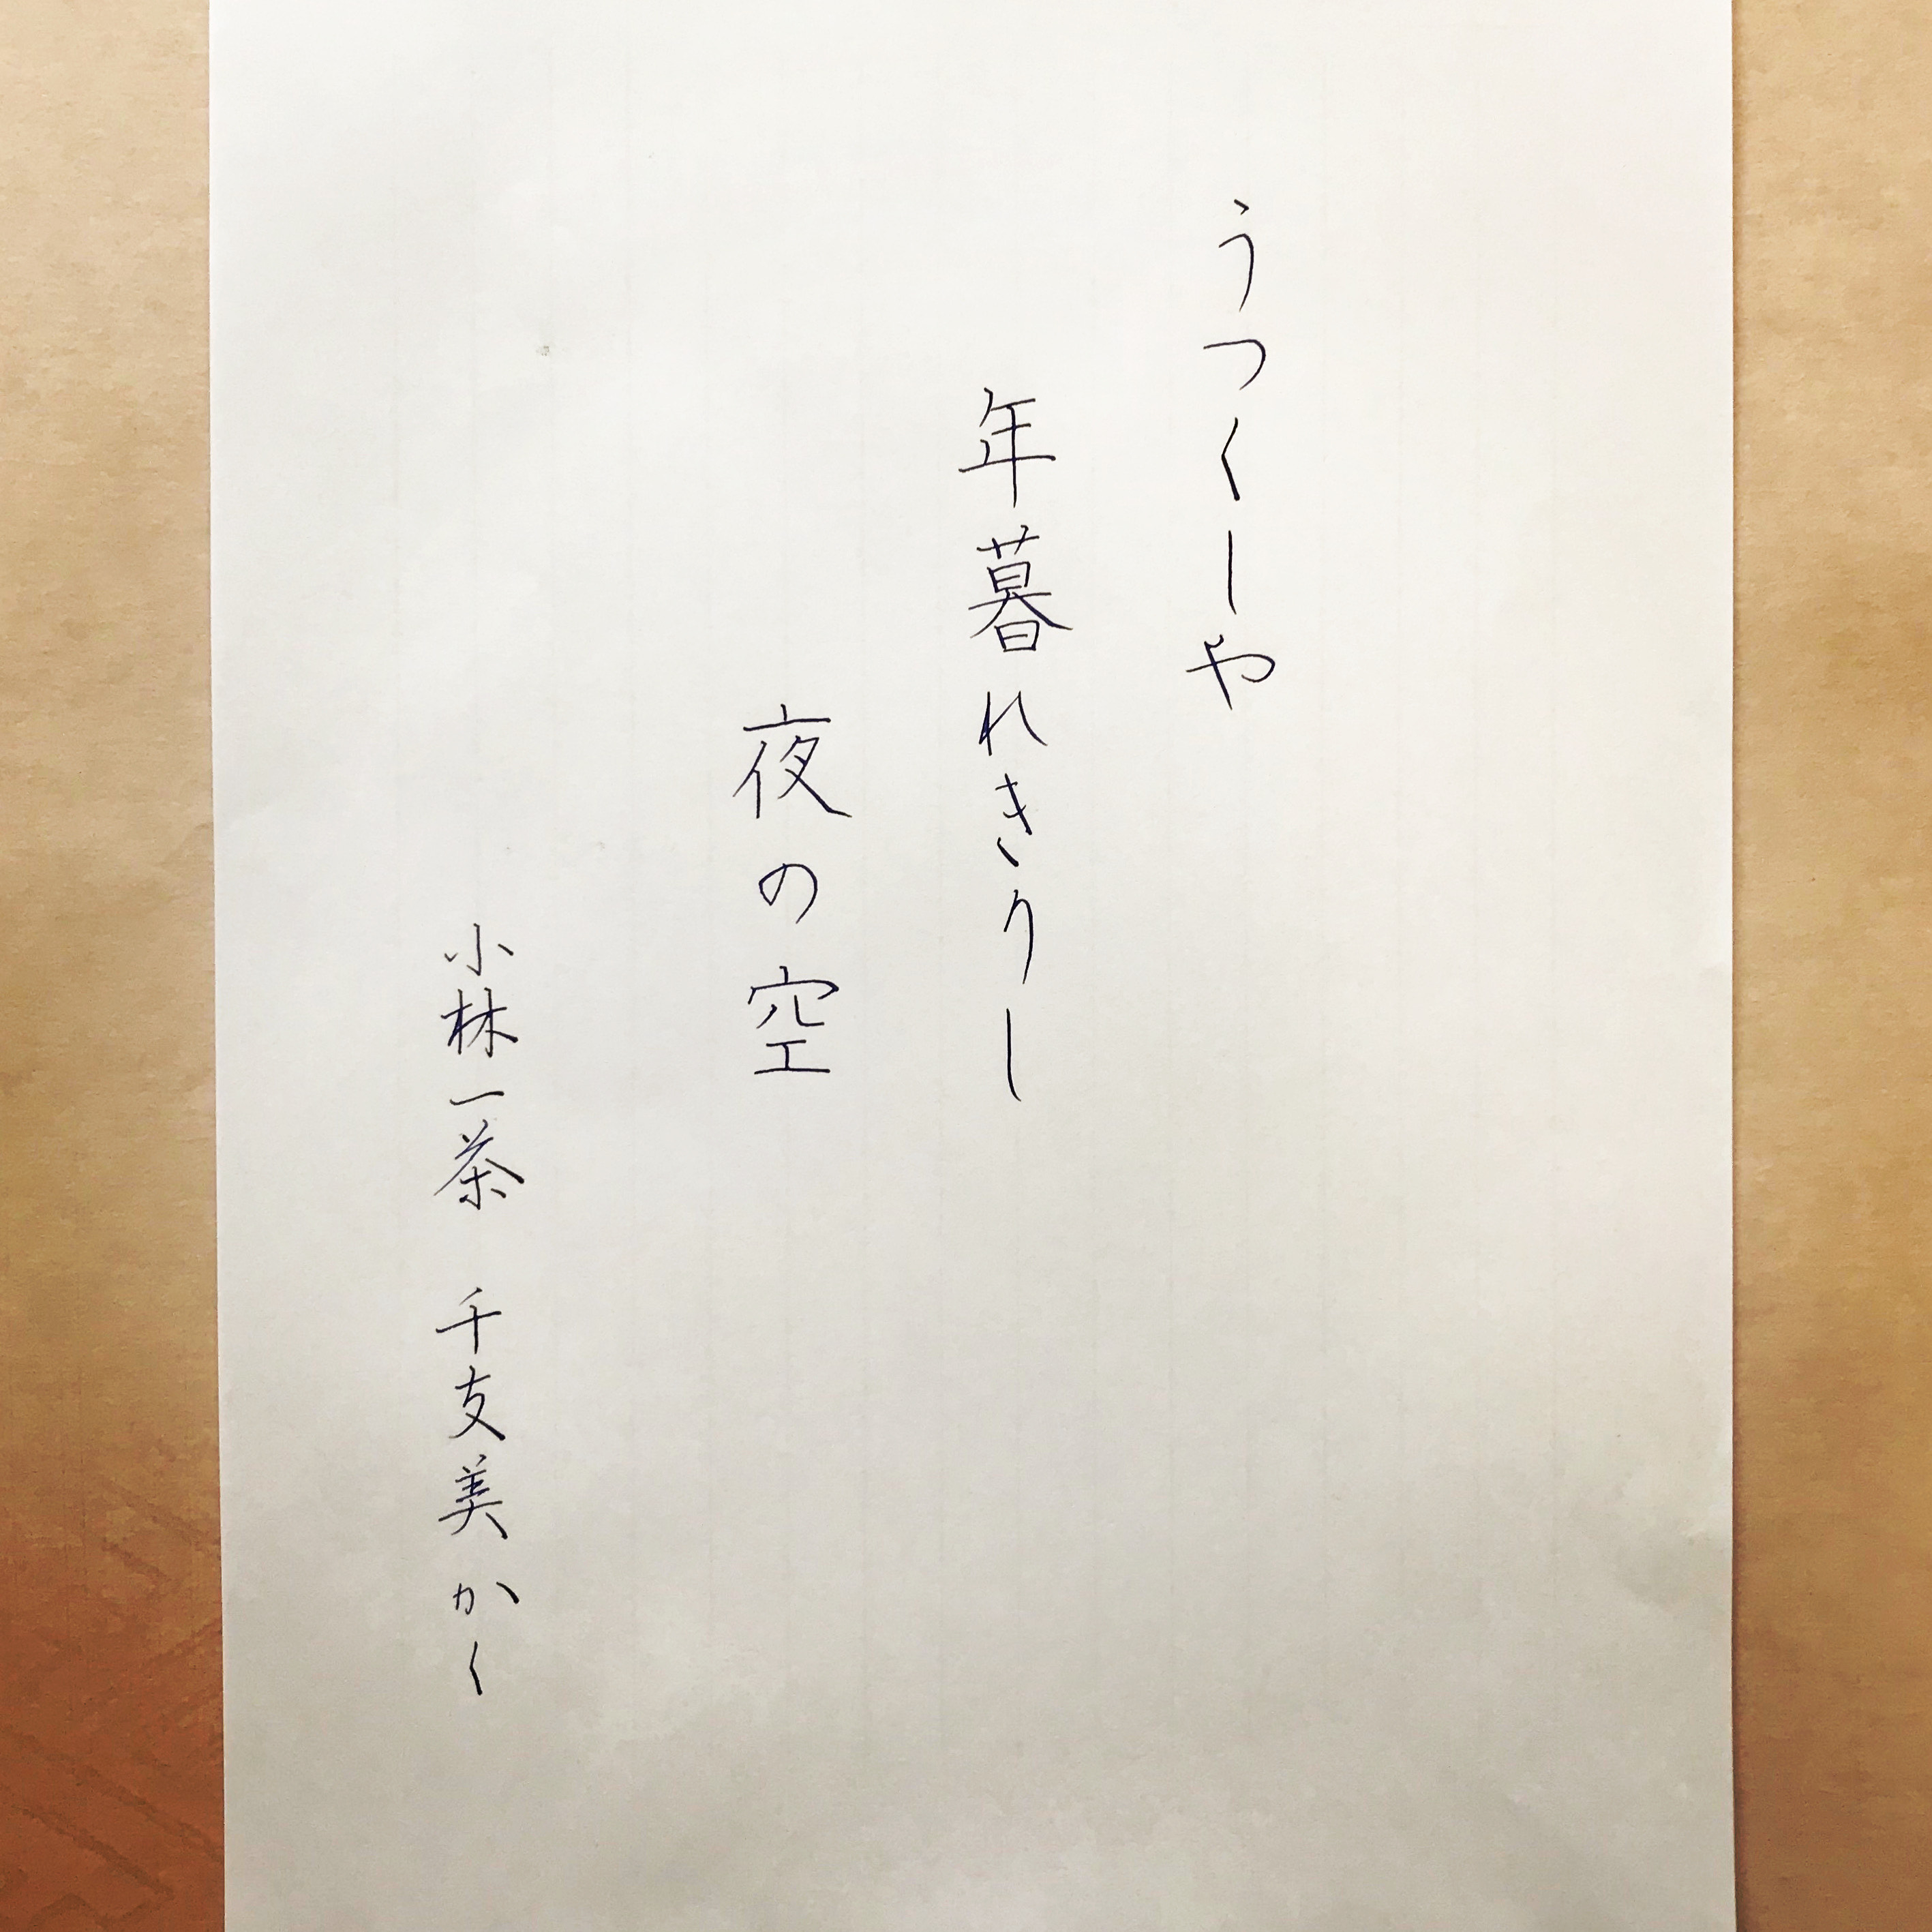 うつくしや
年暮れきりし
夜の空
小林一茶　千支美かく